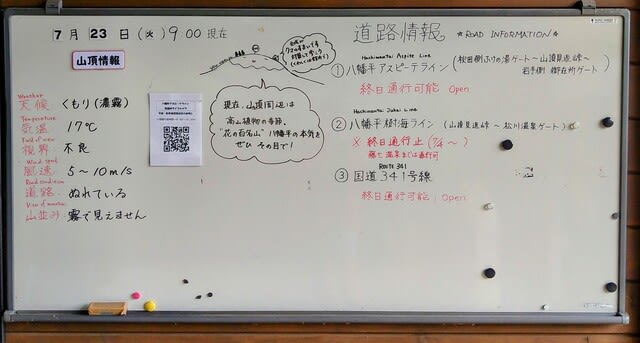 7月23日(火) 9:00 現在
山頂情報
Weather
天候 くもり(濃霧)
Temperature
気温 17℃
Field of view
視界 不良
Wind speed
風速 5〜10m/s
Road condition
道路 ぬれている
View of mountain
山並み 霧で見えません
現在、山頂周辺は
高山植物の季節。
"花の百名山"八幡平の本気を
ぜひ その目で!
道路情報 ☆ROAD INFORMATION☆
Hachimantai Aspite Line
① 八幡平アスピーテライン (秋田側ふけの湯ゲート〜山頂見返峠〜
岩手側 御在所ゲート)
終日通行可能 Open
Hachimantai Jukai Line
② 八幡平樹海ライン (山頂見返峠〜松川温泉ゲート)
× 終日通行止(7/4〜)
藤七温泉までは通行可
ROUTE 341
③ 国道341号線
終日通行可能 Open